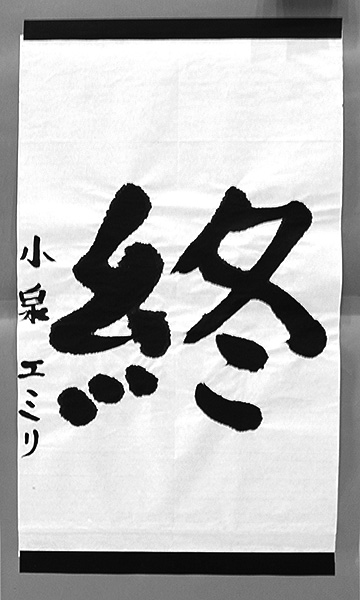 終
小泉 エミリ